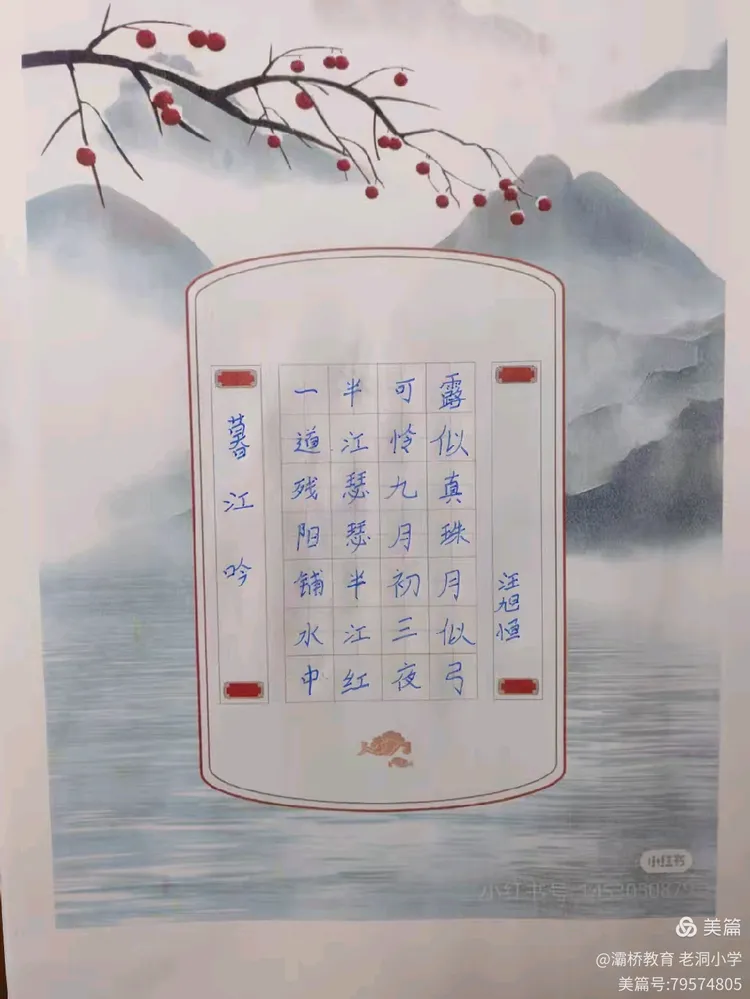 暮江吟
一道残阳铺水中
半江瑟瑟半江红
可怜九月初三夜
露似真珠月似弓
汪旭恒
小红书
美篇
@灞桥教育 老洞小学
美篇号:79574805